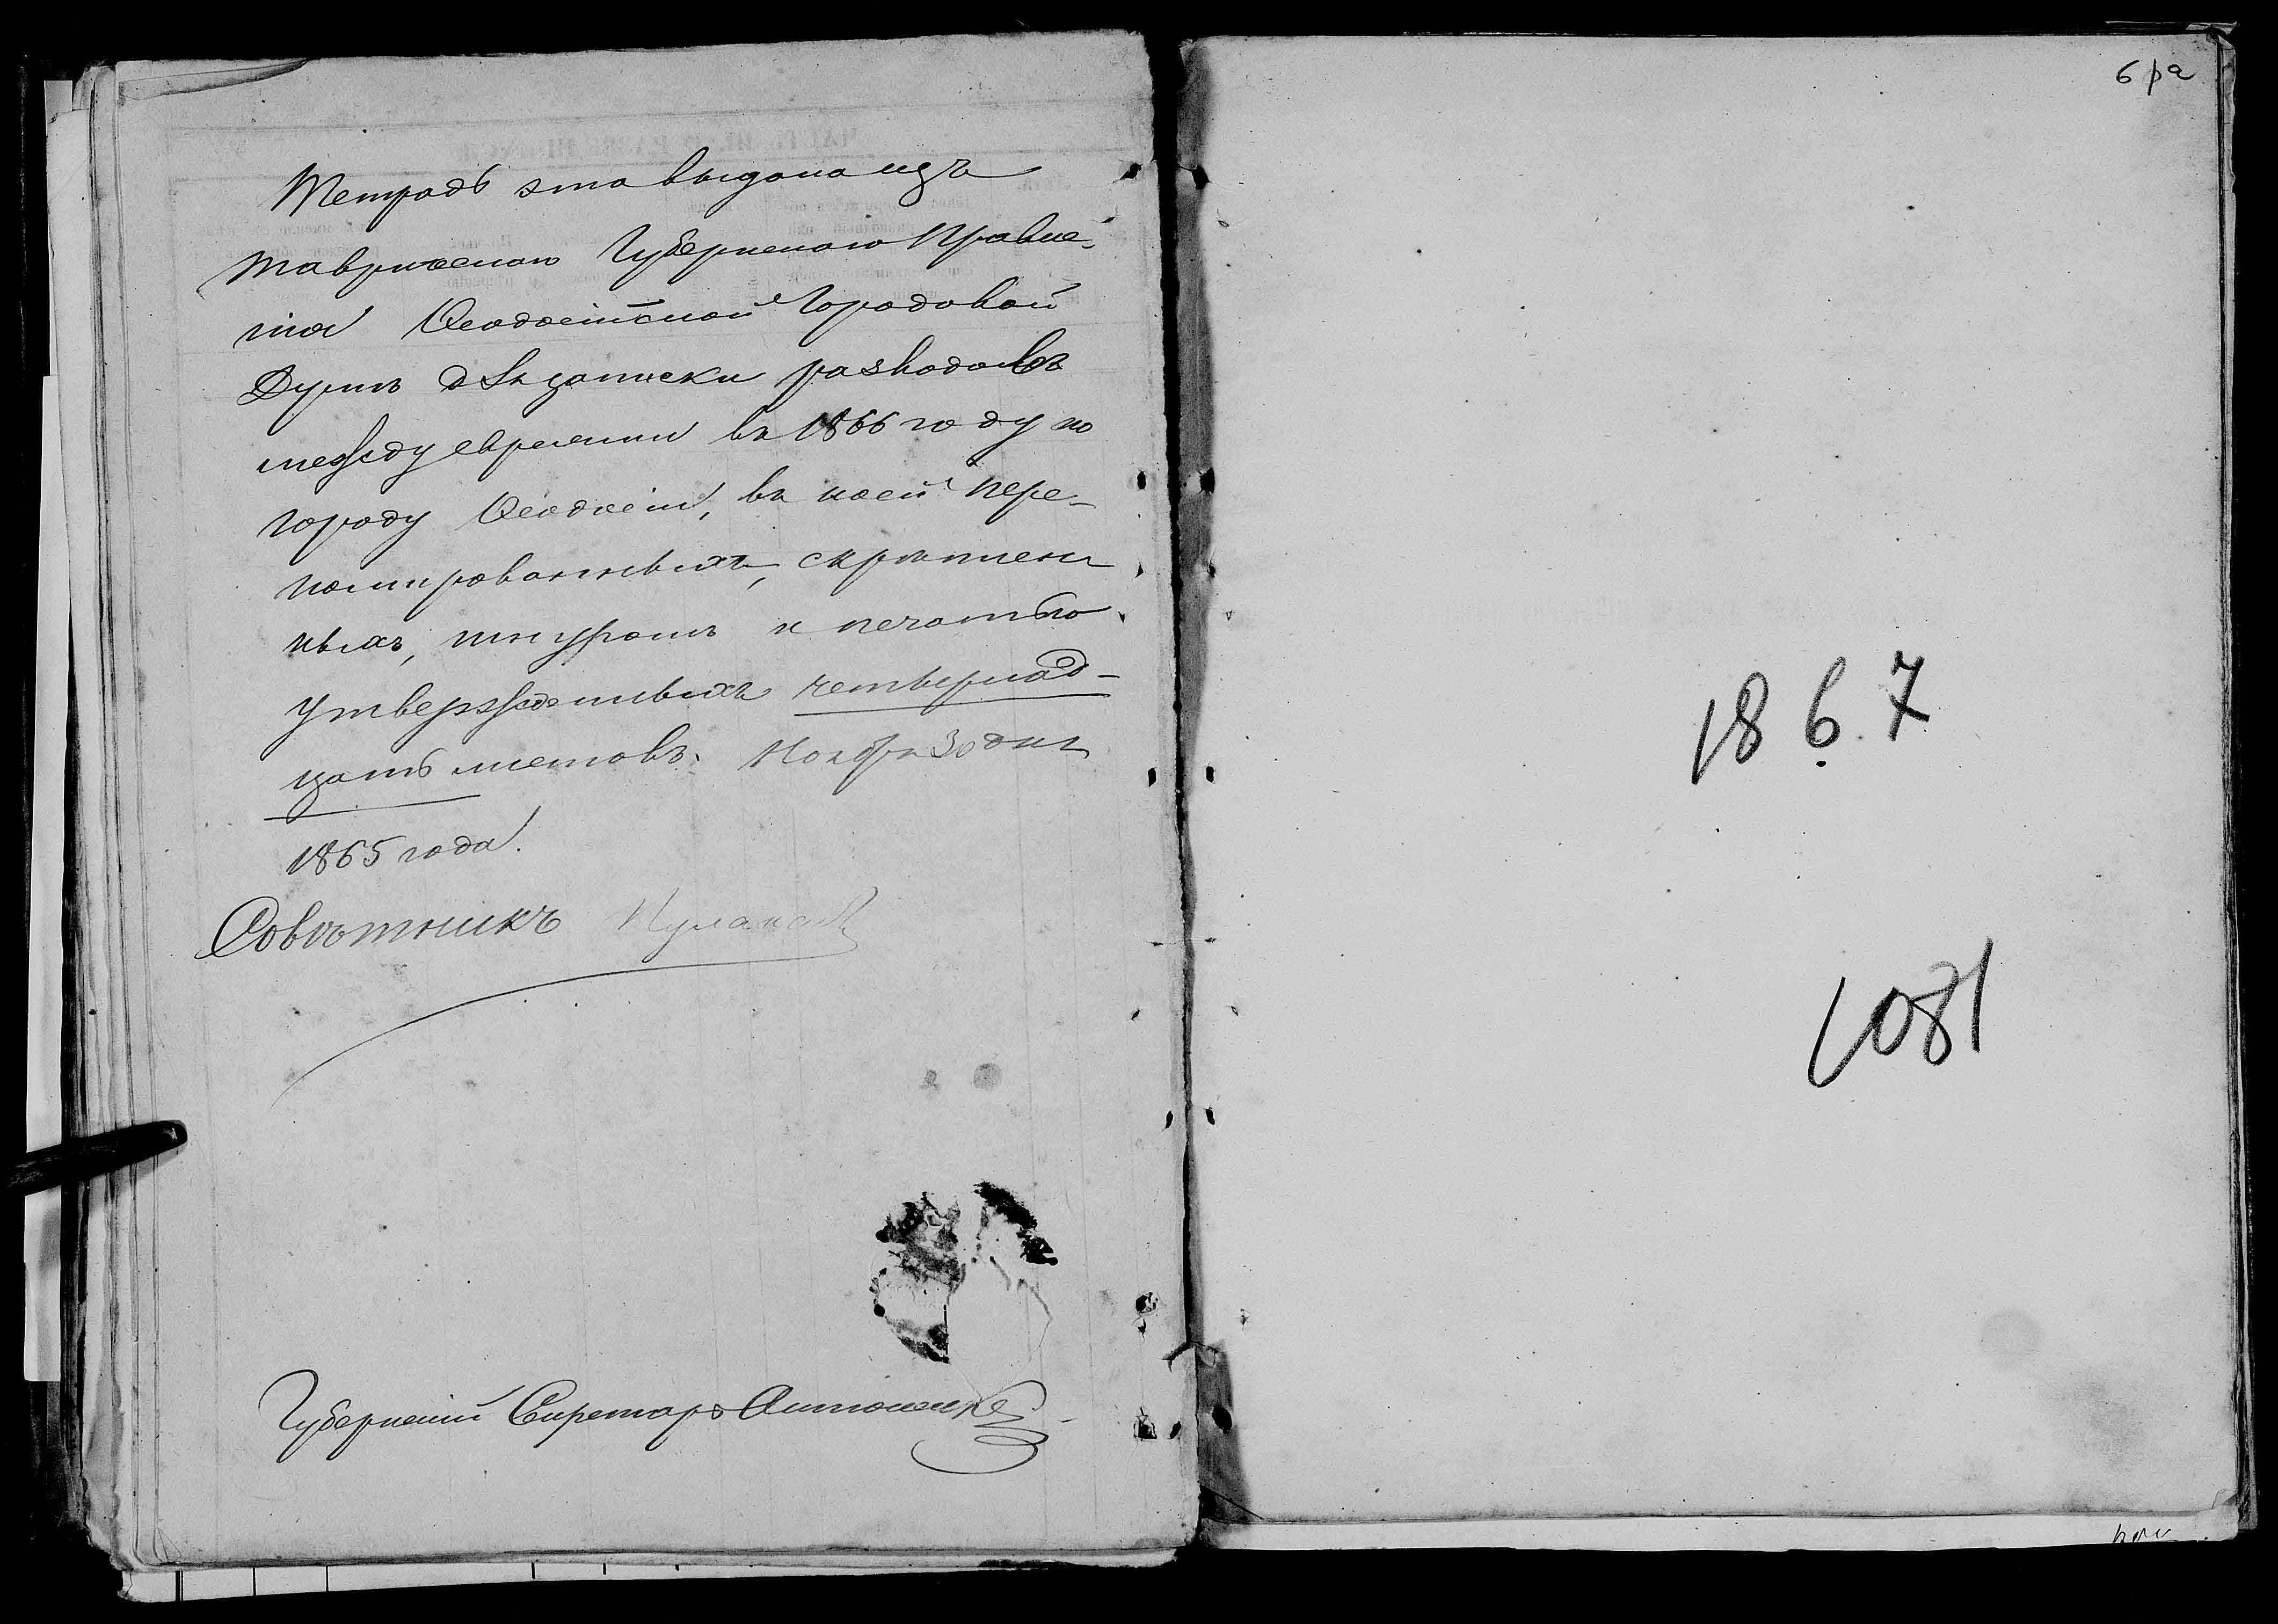 Тетрадь эта выдана изъ
Таврическаго Губернскаго Правле-
нія Ѳеодосійской Городовой
Думѣ для записки разводовъ
между евреями въ 1866 году по
городу Ѳеодосіи, въ коей пере-
номированныхъ, скрѣплен
ныхъ, шнуромъ и печатью
утвержденныхъ четырнад-
цать листовъ. Ноября 30 дня
1865 года.
Совѣтникъ
Губернскій Секретарь
1867
1081